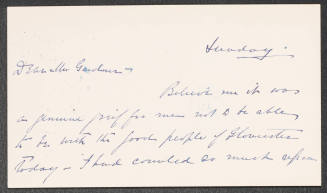 Sunday.
Dear Mr Gardner –
Believe me it was
a genuine grief for me not to be able
to be with the good people of Gloucester
Today – I had counted so much upon